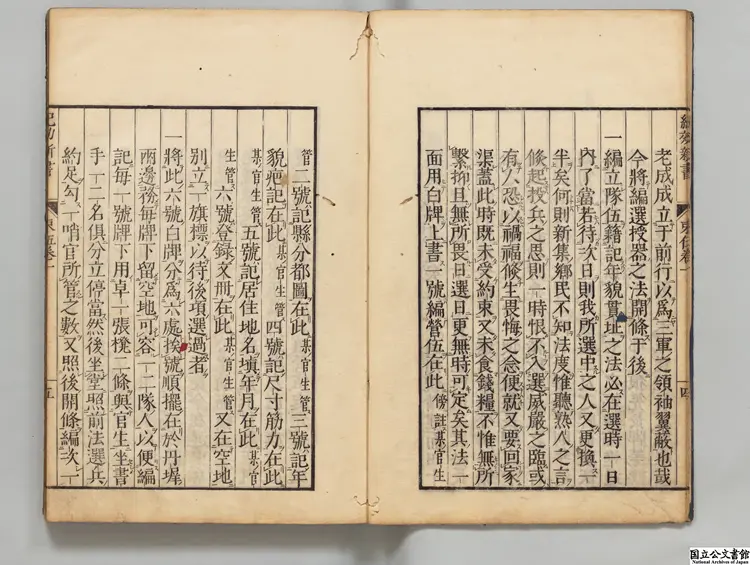 紀効新書 束伍卷一 四
老成立于前行以爲三軍之領袖翼蔽也哉
今將編選授器之法開條于後
一編立隊伍籍記年貌貫址之法必在選時一日
內了當若待次日則我所選中之人又更換一
半矣何則新集鄉民不知法度惟聽熟人之言
倐起投兵之思則一時恨不入選威嚴之臨或
有人恐以禍福倐生畏悔之念便就又要回家
渠蓋此時既未受約束又未食錢糧不惟無所
繫抑且無所畏日選日更無時可定矣其法一
面用白牌上書一號編管伍在此傍註某官生
管二號記縣分都圖在此某官生管三號記年
貌疤記在此某官生管四號記尺寸筋力在此
某官生管五號記居住地名塡年月在此某官
生管六號登錄文冊在此某官生管又在空地
別立一旗標以待後項選過者
一將此六號白牌分爲六處挨號順擺在於丹墀
兩邊務每牌下留空地可容一二隊人以便編
記每一號牌下用卓一張櫈二條與官生坐書
手一二名俱分立停當然後坐堂照前法選兵
約足勾一哨官所管之數又照後開條編次一
紀効新書 束伍卷一 五
国立公文書館
National Archives of Japan